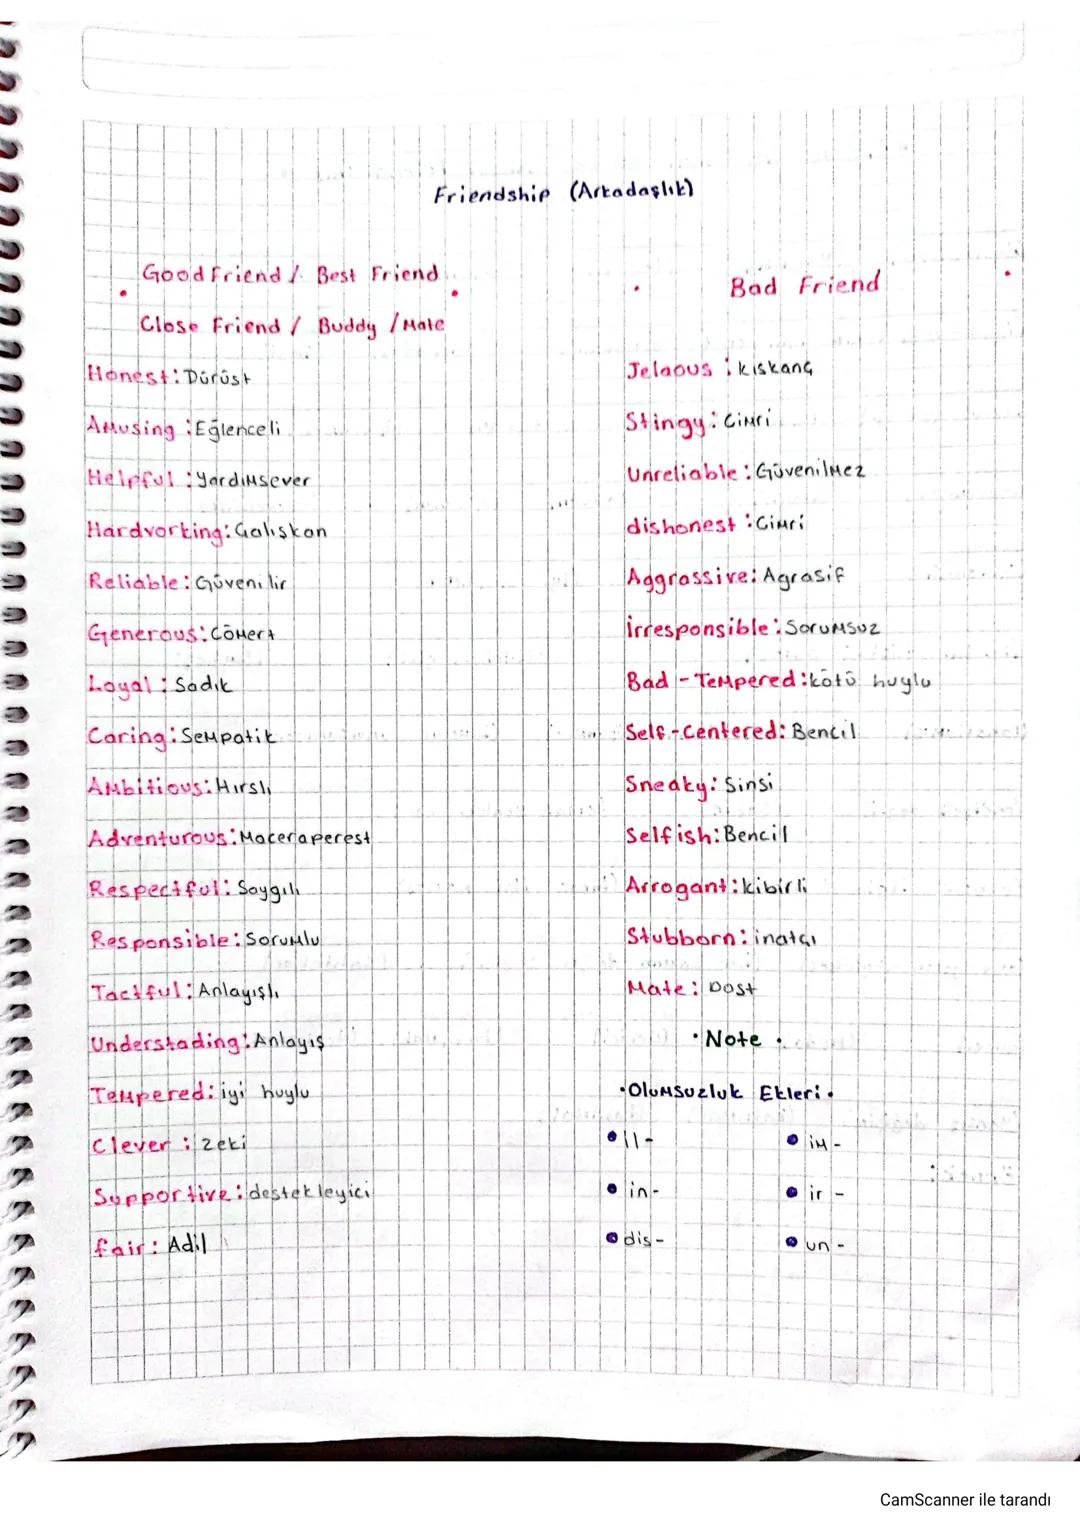 Friendship (Arkadaşlık)
Good Friend / Best Friend
Close Friend / Buddy / Mate
Honest: Dürüst
Amusing: Eğlenceli
Helpful: yardımsever
Hardvorking: Çalışkan
Reliable: Güvenilir
Generous: Cömert
Loyal: Sadık
Caring: Sempatik
Ambitious: Hırslı
Adventurous: Maceraperest
Respectful: Saygılı
Responsible: Sorumlu
Tactful: Anlayışlı
Understading: Anlayış
Tempered: iyi huylu
Clever: zeki
Supportive: destekleyici
fair: Adil
Bad Friend
Jelaous: kıskanç
Stingy: Cimri
Unreliable: Güvenilmez
dishonest: Cimri
Aggrassive: Agrasif
İrresponsible: Sorumsuz
Bad - Tempered: kötü huylu
Self - Centered: Bencil
Sneaky: Sinsi
Selfish: Bencil
Arrogant: kibirli
Stubborn: inatçı
Mate: Dost
• Note •
• Olumsuzluk Ekleri •
• il- • im-
• in- • ir-
• dis- • un-
CamScanner ile tarandı